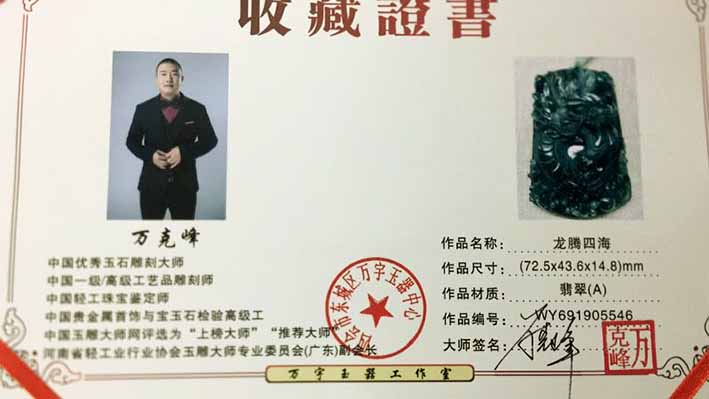 收藏證書
万克峰
中国优秀玉石雕刻大师
中国一级/高级工艺品雕刻师
中国轻工珠宝鉴定师
中国贵金属首饰与宝玉石检验高级工
中国玉雕大师网评选为“上榜大师”“推荐大师”
河南省轻工业行业协会玉雕大师专业委员会(广东)副会长
四会市东城区万字玉器中心
作品名称: 龙腾四海
作品尺寸: (72.5x43.6x14.8)mm
作品材质: 翡翠(A)
作品编号: WY691905546
大师签名:
万克峰
万字玉器工作室